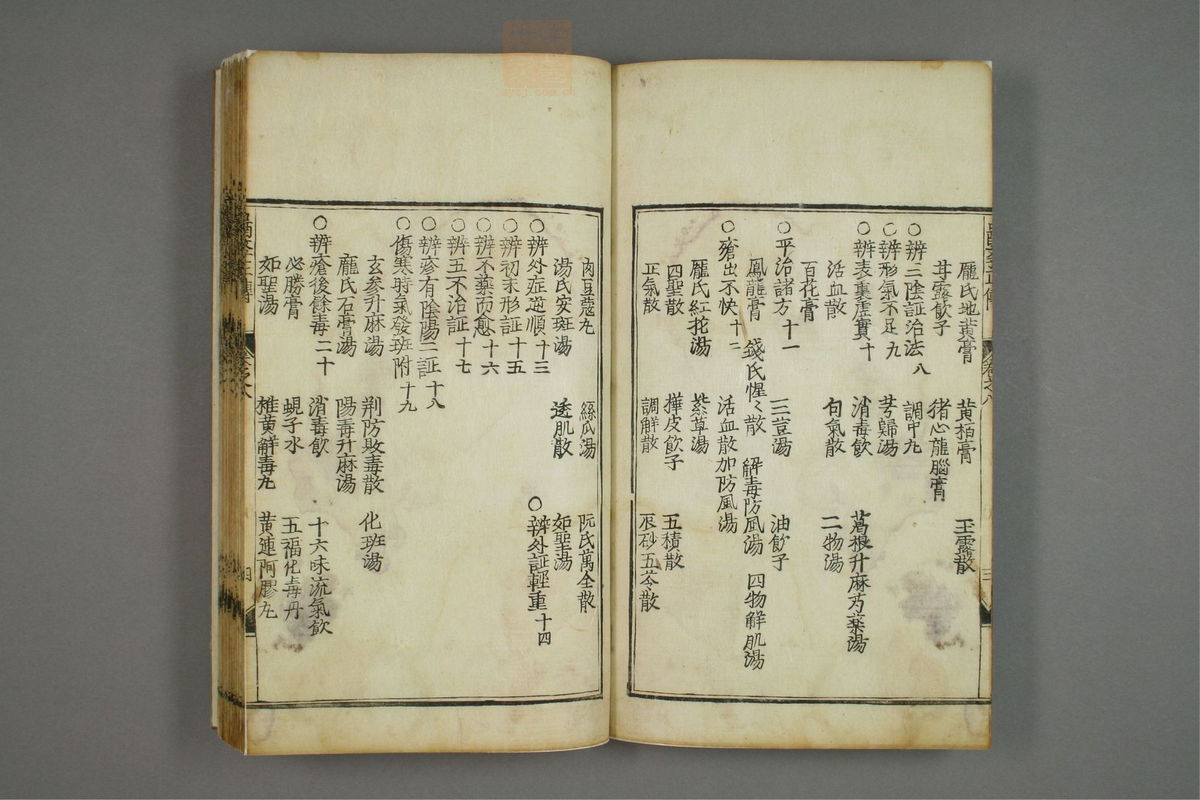 龐氏地黃膏 黃栢膏 玉露散
甘露飲子 猪心龍腦膏
○辨三陰証治法八 調中丸
○辨形氣不足九 芎歸湯
○辨表裏虛實十 消毒飲 葛根升麻芍藥湯
活血散 匀氣散 二物湯
百花膏
○平治諸方十一 三豆湯 油飲子
鳳龍膏 錢氏惺〻散 解毒防風湯 四物解肌湯
○瘡出不快十二 活血散加防風湯
龐氏紅花湯 紫草湯
四聖散 樺皮飲子 五積散
正氣散 調解散 辰砂五苓散
肉豆蔻丸 絲瓜湯 阮氏萬全散
湯氏安斑湯 透肌散 如聖湯
○辨外症逆順十三 ○辨外証輕重十四
○辨初末形証十五
○辨不藥而愈十六
○辨五不治証十七
○辨疹有陰陽二証十八
○傷寒時氣發班附十九
玄參升麻湯 荆防敗毒散 化班湯
龐氏石膏湯 陽毒升麻湯
○辨瘡後餘毒二十 消毒飲 十六味流氣飲
必勝膏 蜆子水 五福化毒丹
如聖湯 雄黃解毒丸 黃連阿膠丸
卷之八
三
四